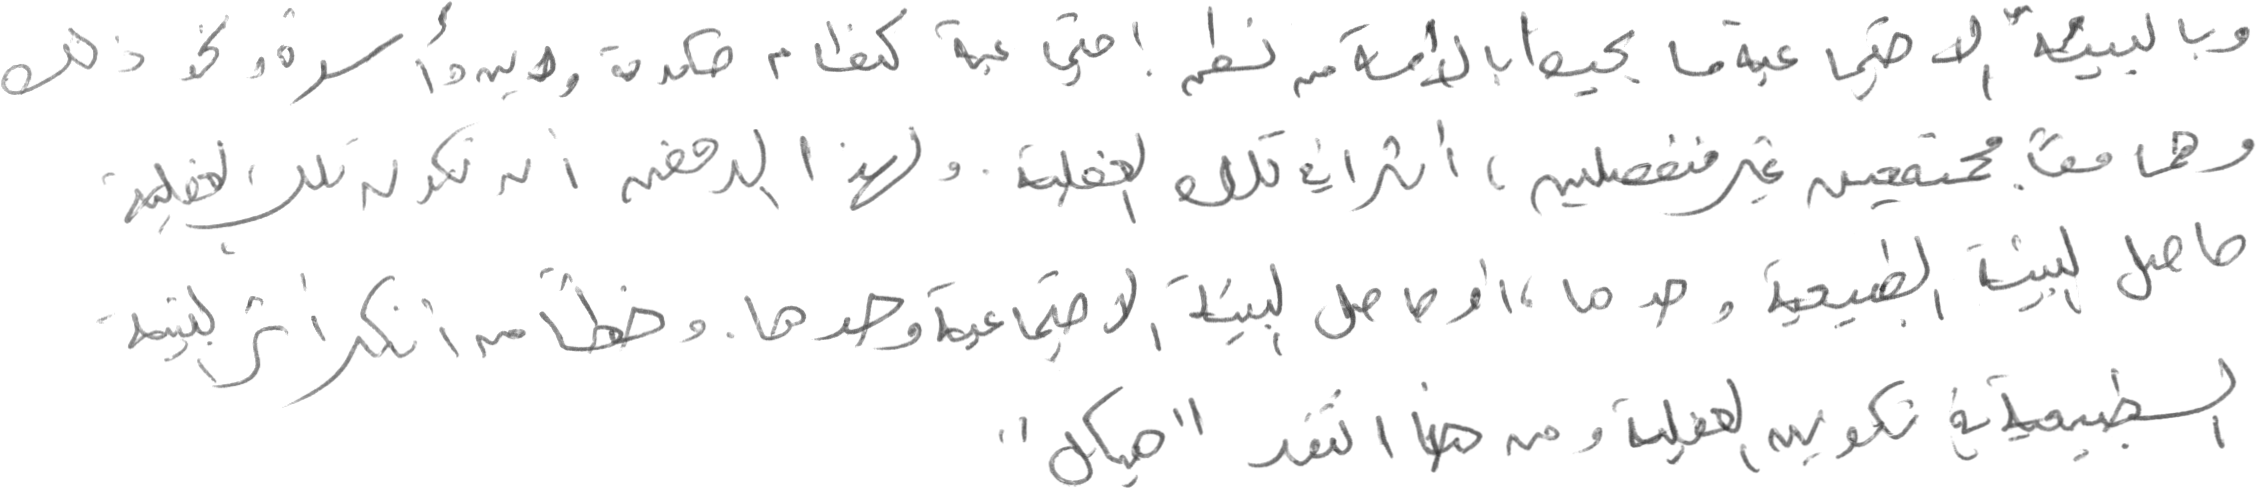 وبالبيئة الاجتماعية ما يحيط بالأمة من نظم اجتماعية كنظام حكومة ودين وأسرة ونحو ذلك
وهما معاً مجتمعين غير منفصلين، أثرا في تلك العقلية. ولهذا نرفض أن تكون تلك العقلية
حاصل البيئة الطبيعية وحدها، أو حاصل البيئة الاجتماعية وحدها. وخطأ من أنكر أثر البيئة
الطبيعية في تكوين العقلية ومن هنا انتقد "هيكل"